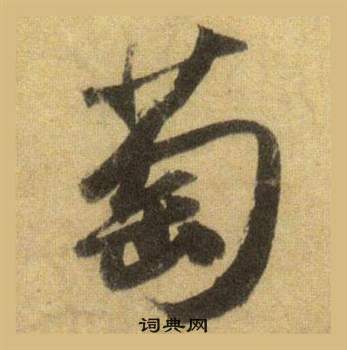 萄
词典网